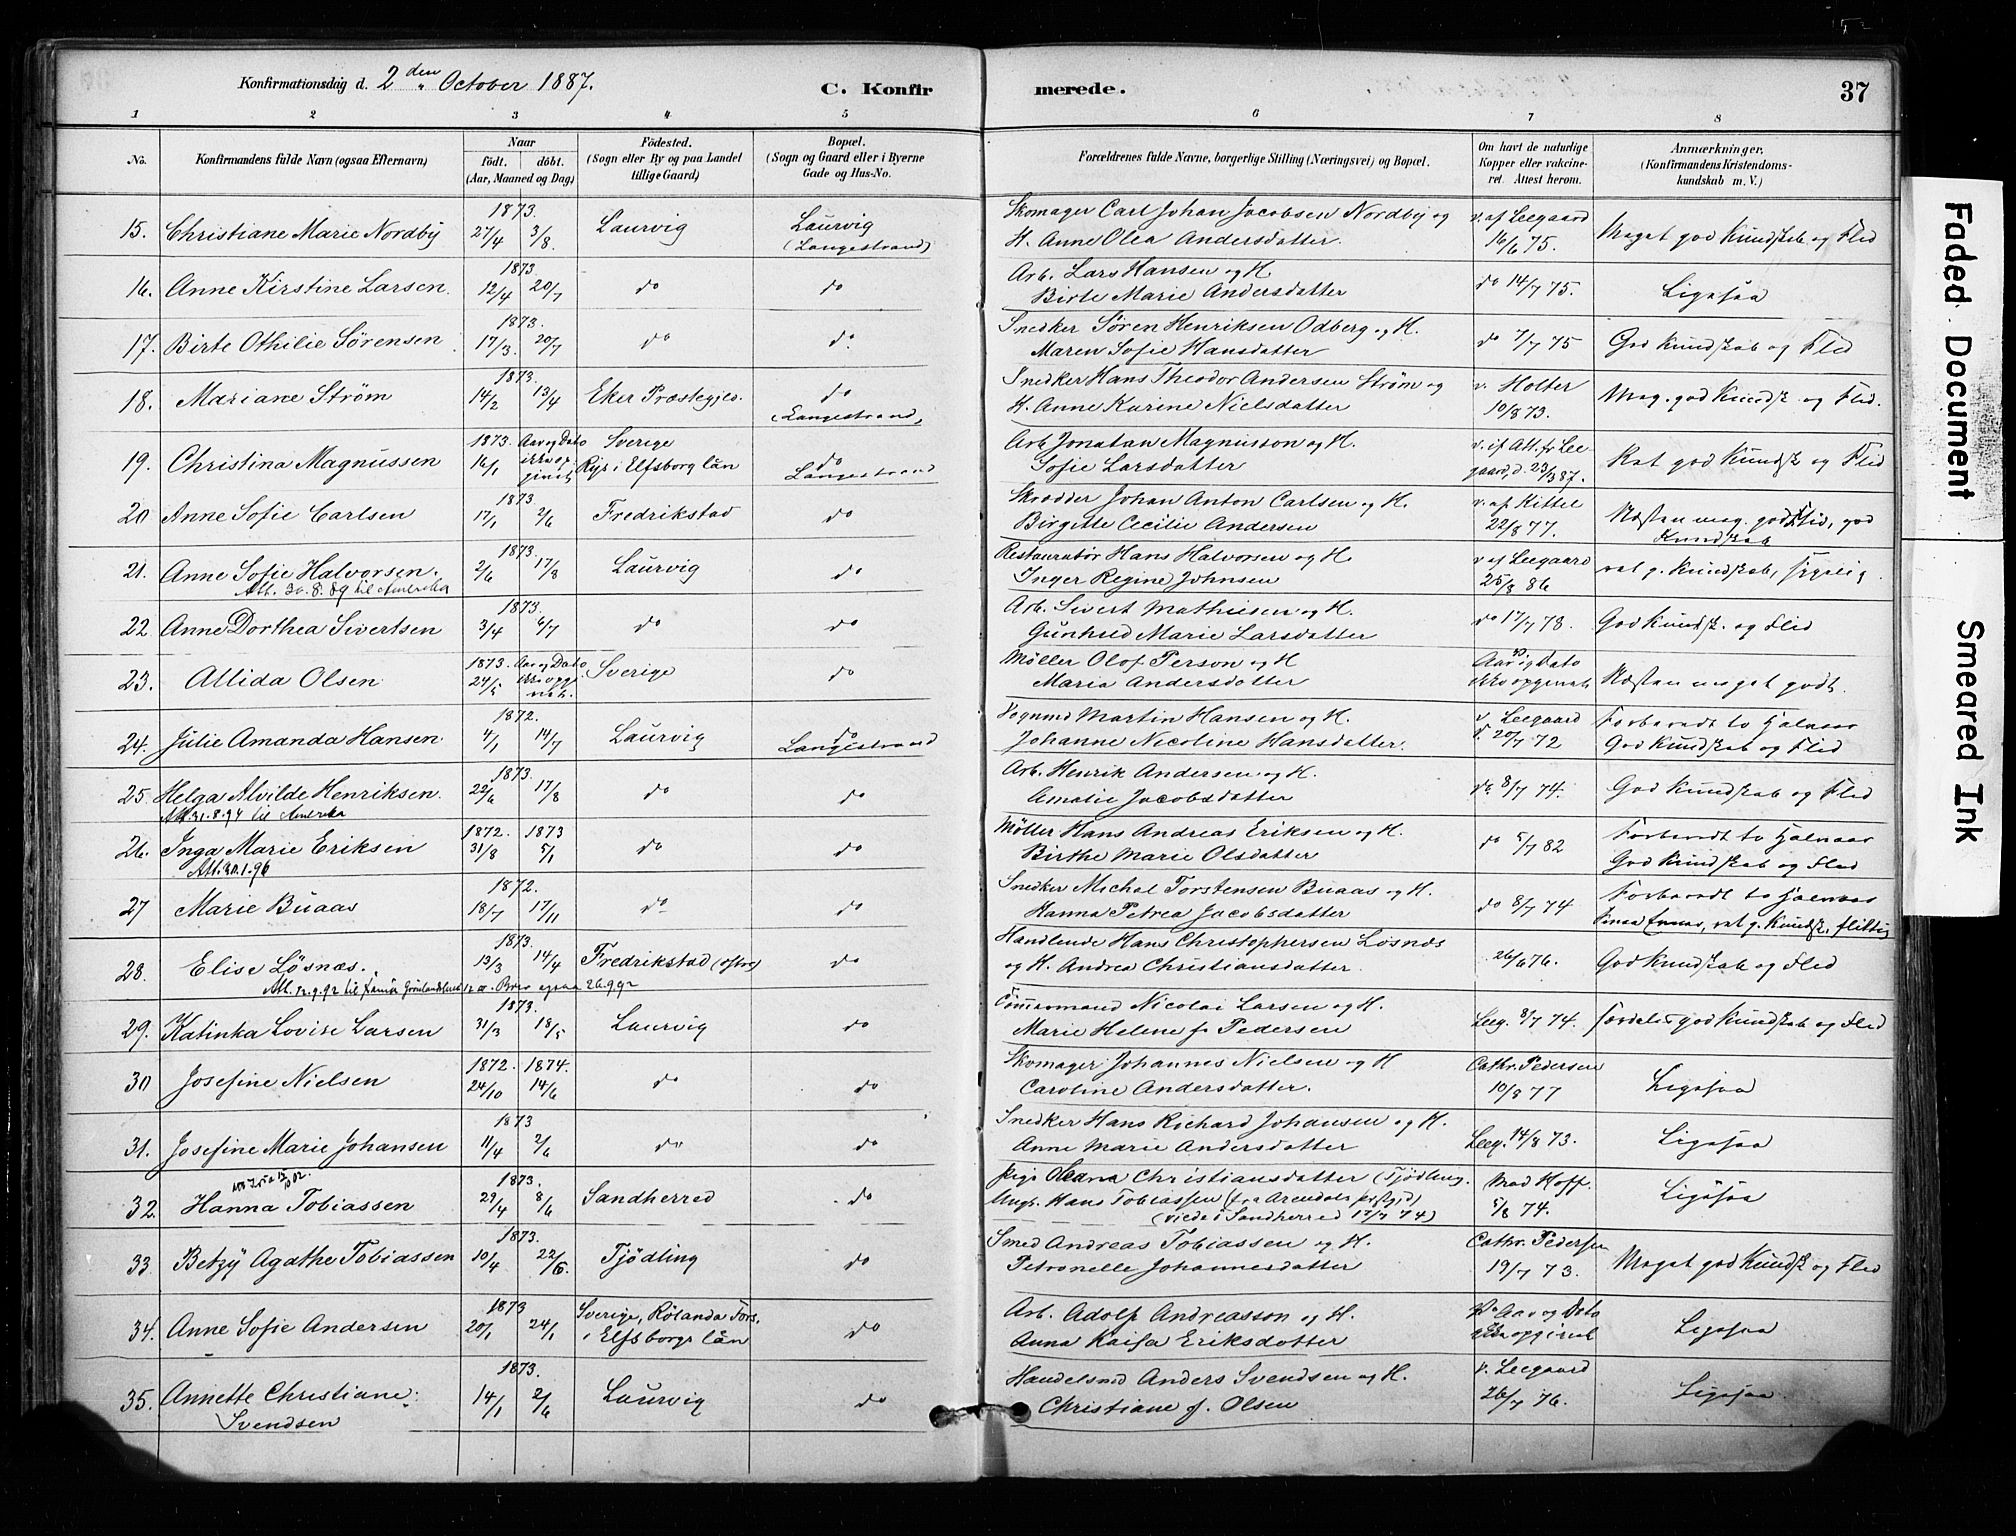 Konfirmationsdag d. 2den October 1887.
C. Konfirmerede.
37
1 2 3 4 5 6 7 8
No.
Konfirmandens fulde Navn (ogsaa Efternavn)
Naar
födt. döbt.
(Aar, Maaned og Dag)
Födested.
(Sogn eller By og paa Landet
tillige Gaard)
Bopæl.
(Sogn og Gaard eller i Byerne
Gade og Hus-No.
Forældrenes fulde Navne, borgerlige Stilling (Næringsvei) og Bopæl.
Om havt de naturlige
Kopper eller vakcine-
ret. Attest herom.
Anmærkninger,
(Konfirmandens Kristendoms-
kundskab m. V.)
15. Christiane Marie Nordby 1873. 27/4 3/8. Laurvig Laurvig (Langestrand)
Skomager Carl Johan Jacobsen Nordby og
H. Anne Olea Andersdatter. v. af Leegaard 16/6 75. Meget god Kundskab og Flid
16. Anne Kirstine Larsen. 1873. 12/4 20/7 do do
Arb. Lars Hansen og H.
Birte Marie Andersdatter do 14/7 75. Ligesaa
17. Birte Othilie Sørensen 1873. 17/3. 20/7 do do
Snedker Søren Henriksen Odberg og H.
Maren Sofie Hansdatter do 7/7 75 God Kundskab og Flid
18. Mariane Strøm 1873. 14/2 13/4 Eker Præstegjeld. do (Langestrand)
Snedker Hans Theodor Andersen Strøm og
H. Anne Karine Nielsdatter v. Holter 10/8 73. Meg. god Kundsk og Flid.
19. Christina Magnussen 1873. 16/1 Aar og Dato ikke opgivet Sverige Ryr i Elfsborg län do Langestrand
Arb. Jonatan Magnusson og H.
Sofie Larsdatter v. if Att. fr Leegaard, d. 23/3 87. Ret god Kundsk og Flid
20 Anne Sofie Carlsen 1873 17/1 2/6 Fredrikstad do
Skrædder Johan Anton Carlsen og H.
Birgitte Cecilie Andersen v. af Kittel 22/8 77. Næsten meg. god Flid, god
Kundskab
21. Anne Sofie Halvorsen. 1873. 2/6 17/8 Laurvig do
Att. 30.8.89 til Amerika
Restauratør Hans Halvorsen og H
Inger Regine Johnsen v af Leegaard 25/3 86 ret g. Kundskab,
22 Anne Dorthea Sivertsen 1873. 3/4 6/7 do do
Arb. Sivert Mathiesen og H.
Gunhild Marie Larsdatter do 17/7 78. God Kundsk. og Flid
23. Allida Olsen 1873. 24/5 Aar og Dato ikke opgivet. Sverige do
Møller Olof Person og H
Maria Andersdotter Aar og Dato ikke opgivet Næsten meget godt.
24. Julie Amanda Hansen 1872. 4/1 14/7 Laurvig do Langestrand
Martin Hansen og H.
Johanne Nicoline Hansdatter. v. Leegaard 20/7 72 Forberedt to Halvaar
God Kundskab og Flid
25. Helga Alvilde Henriksen. 1873. 22/6 17/8 do do
Att. 31.8.94 til Amerika
Arb. Henrik Andersen og H.
Amalie Jacobsdatter do. 8/7 74. God Kundskab og Flid
26. Inga Marie Eriksen 1872. 31/8 1873 5/1 do do
Att. 30.1.96
Møller Hans Andreas Eriksen og H.
Birthe Marie Olsdatter do 5/7 82 Forberedt to Halvaar
God Kundskab og Flid
27 Marie Buaas 1872. 18/7 17/11 do do
Snedker Michal Torstensen Buaas og H.
Hanna Petrea Jacobsdatter do 8/7 74 Forberedt to Halvaar
ret g. Kundsk, flittig
28. Elise Løsnæs. 1873. 13/3 14/4 Fredrikstad (østre) do
Handlende Hans Christophersen Løsnæs
og H. Andrea Christiansdatter. 26/6 76. God Kundskab og Flid
29. Katinka Lovise Larsen 1873. 31/3 18/5 Laurvig do
Tømmermand Nicolai Larsen og H.
Marie Helene f. Pedersen Leeg. 8/7 74. særdeles god Kundskab og Flid
30 Josefine Nielsen 1872. 24/10 1874. 14/6 do do
Skomager Johannes Nielsen og H
Caroline Andersdatter. Cathr. Pedersen 10/8 77 Ligesaa
31. Josefine Marie Johansen 1873 11/4 2/6 do do
Snedker Hans Richard Johansen og H.
Anne Marie Andersdatter Leeg. 14/8 73. Ligesaa
32. Hanna Tobiassen 1873. 29/4 8/6 Sandherred do
Pige Oleana Christiansdatter (Tjødling.
Ungk. Hans Tobiassen (fra Arendals
(viede i Sandherred 17/7 74) Mad Hoff. 5/8 74. Ligesaa
33. Betzy Agathe Tobiassen 1873. 10/4 22/6. Tjødling do
Smed Andreas Tobiassen og H.
Petronelle Johannesdatter Cathr. Pedersen 19/7 73. Meget god Kundsk og Flid
34. Anne Sofie Andersen 1873 20/1 24/1 Sverige, Rölanda Fors. i Elfsborgs län do
Arb. Adolf Andreasson og H.
Anna Kaisa Eriksdotter v. Aar og Dato ikke opgivet Ligesaa
35. Annette Christiane 1873. 14/1 2/6 Laurvig do
Svendsen
Handelsmd Anders Svendsen og H.
Christiane f. Olsen v. Leegaard 26/7 76. Ligesaa.
Faded Document
Smeared Ink